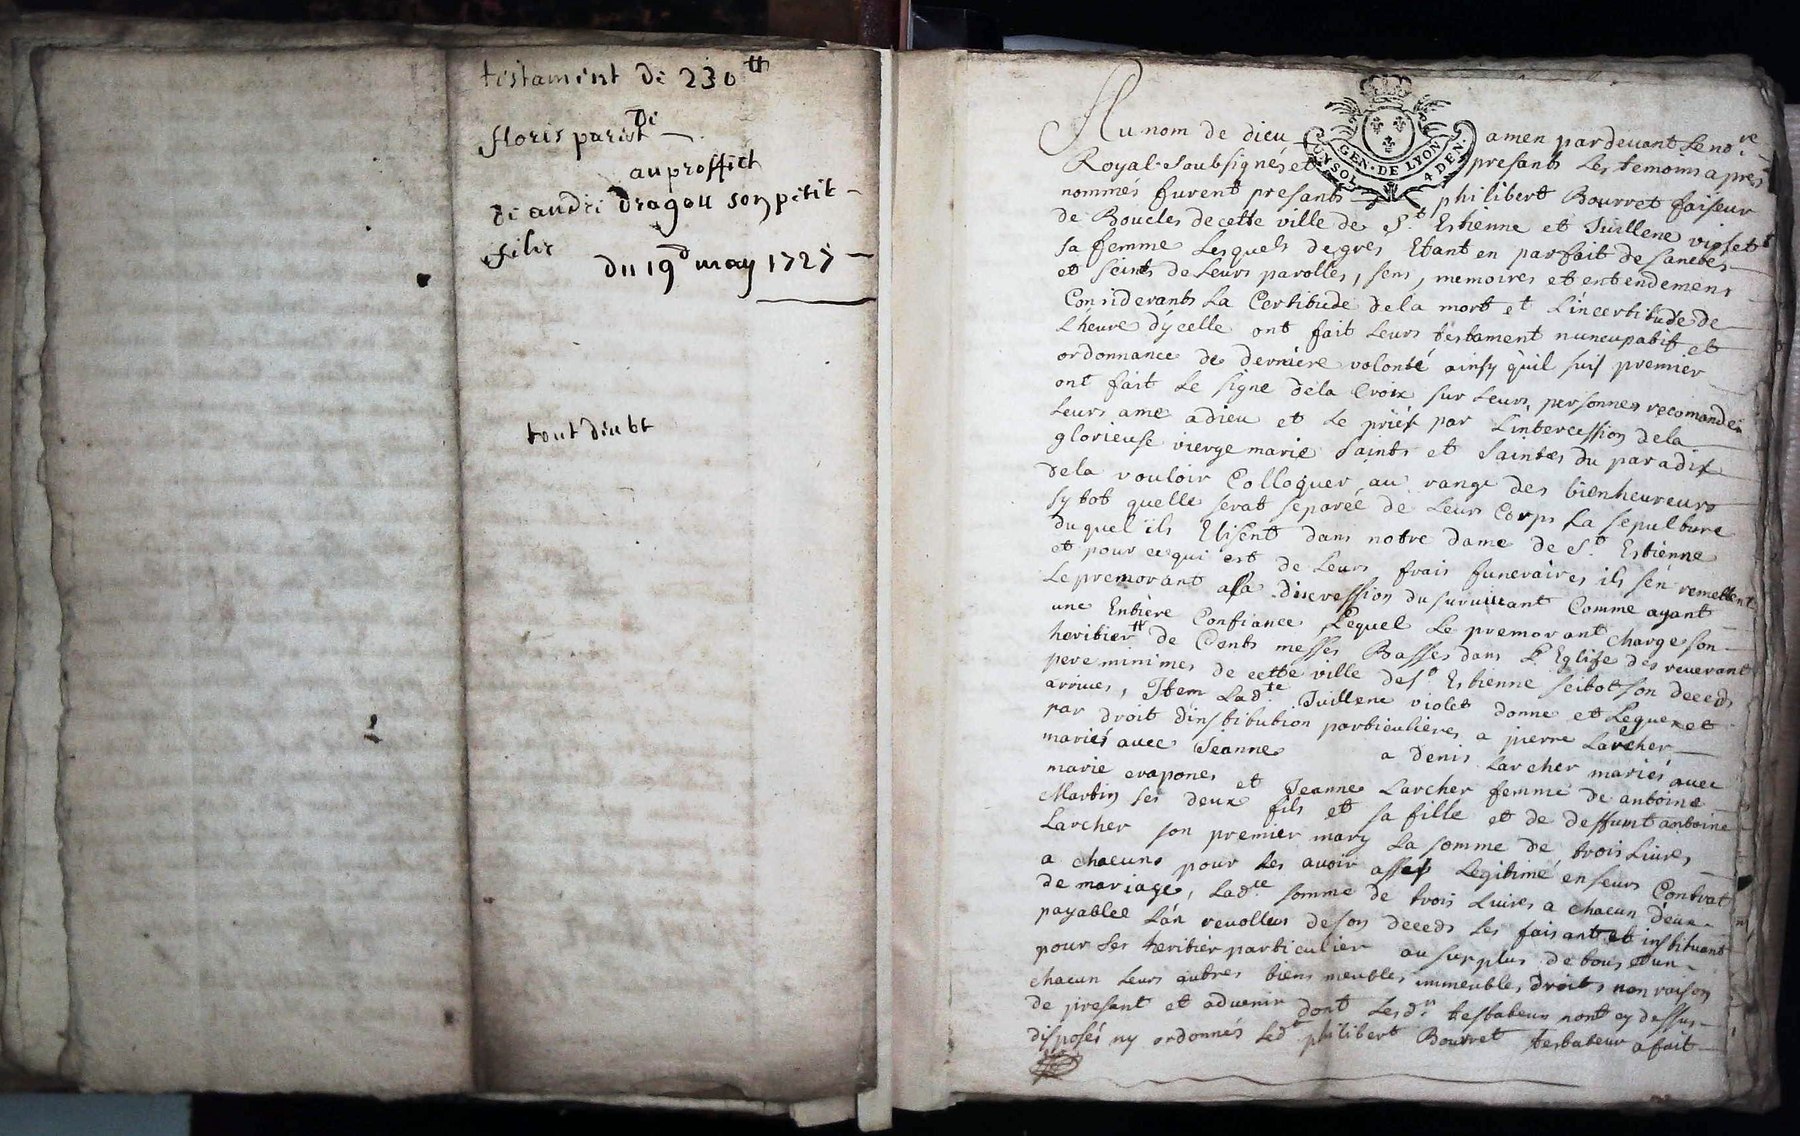 testament de 230 ₶
de
floris parist
au proffith
de andre dragon son petit
filie
du 19d may 1727
tout deubt
Au nom de dieu amen pardevant le no.re
Royal soubsignés et presants les temoins apres
nommés furent presants philibert Bourret faiseur
de Boucles de cette ville de St Estienne et Juillene violet
sa femme Lesquels de gres Etant en parfait de santées
et seints de Leurs parolles, sens, memoires et entendemens
Considerants La Certitude de la mort et L'incertitude de
L'heure d'ycelle ont fait Leurs testament nuncupatif et
ordonnance de derniere volonté ainsy qu'il suit premier
ont fait Le signe de la Croix sur Leurs personnes recomandes
Leurs ame a dieu et Le priér par L'intercession de la
glorieuse vierge marie saints et saintes du paradis
de la vouloir Colloquer au rang des bienheureux
sy tot quelle serat separée de Leurs Corps La sepulture
duquel ils Elisent dans notre dame de St Estienne
et pour ce qui est de Leurs frais funeraires ils s'en remettent
Le premorant a la discression du survivant Comme ayant
une Entière Confiance Lequel Le premorant charge son
heritier de Cents messes Basses dans L'Eglise des reverant
pere minimes de cette ville de St Estienne seitot son deceds
arrives, Item Ladte Juillene violet donne et Legue et
par droit d'institution particulieres a pierre Larcher
mariés avec Jeanne a denis Larcher mariés avec
marie crapones et Jeanne Larcher femme de antoine
Martin ses deux fils et sa fille et de deffunt antoine
Larcher son premier mary La somme de trois Livres
a chacuns pour les avoir asses Legitimé en Leurs Contrat
de mariage, Ladte somme de trois Livres a chacun d'eux
payablee L'an revollus de son deceds Les faisant et instituant
pour ses heritier particulier au surplus de tous et un
chacun Leurs autres biens meubles, immeubles, droits, non raison
de presant et advenir dont Lesd. testateurs n'ont cy dessus
disposés ny ordonnés Ledt philibert Bourret testateur a fait